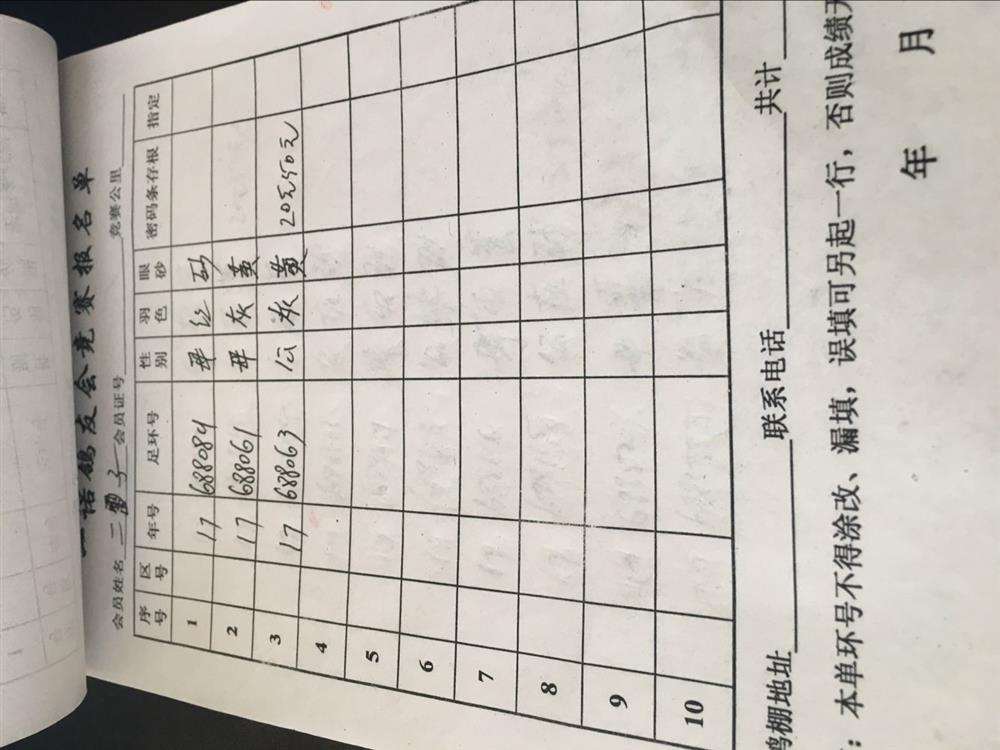 诺鸽友会竞赛报名单
会员姓名 二 子 会员证号 竞赛公里
序号 区号 年号 足环号 性别 羽色 眼砂 密码条存根 指定
1 17 688084 红 砂
2 17 688061 灰 黄
3 17 688063 公 灰 黄 20元50元
4
5
6
7
8
9
10
鸽棚地址 联系电话 共计
：本单环号不得涂改、漏填，误填可另起一行，否则成绩无
年 月